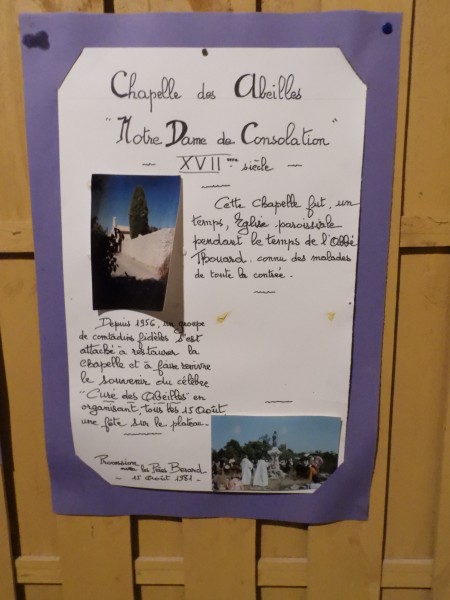 Chapelle des Abeilles
"Notre Dame de Consolation"
XVIIème siècle
Cette Chapelle fut, un
temps, Eglise paroissiale
pendant le temps de l'Abbé
Thouard, connu des malades
de toute la contrée.
Depuis 1956, un groupe
de comtadins fidèles s'est
attaché à restaurer la
chapelle et à faire revivre
le souvenir du célèbre
"Curé des Abeilles" en
organisant, tous les 15 Août
une fête sur le plateau.
Procession
avec les Pères Berard
- 15 Août 1981 -